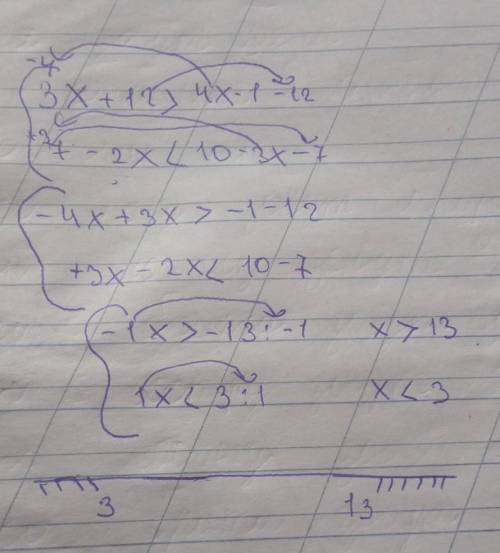 -4
3x + 12 > 4x - 1 - 12
+3
7 - 2x < 10 - 3x - 7
- 4x + 3x > - 1 - 12
+3x - 2x < 10 - 7
- 1x > - 13 : - 1 x > 13
1x < 3 : 1 x < 3
3 13